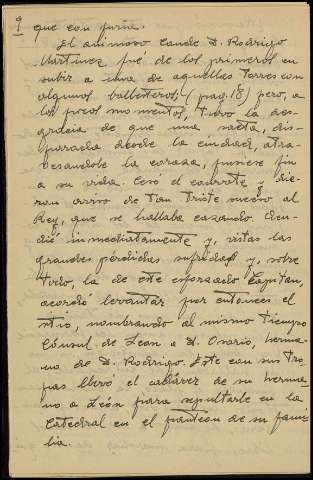 9
que con furia.
El animoso Conde D. Rodrigo
Martinez fué de los primeros en
subir a una de aquellas torres con
algunos ballesteros, (pag. 18) pero, a
los pocos momentos, tuvo la des-
gracia de que una saeta, dis-
parada desde la ciudad, atra-
vesandole la coraza, pusiese fin
a su vida. Cesó el combate y die-
ron aviso de tan triste suceso al
Rey, que se hallaba cazando. Acu-
dió inmediatamente y, vistas las
grandes pérdidas sufridas y, sobre
todo, la de este esforzado Capitan,
acordó levantar por entonces el
sitio, nombrando al mismo tiempo
Cónsul de Leon a D. Osorio, herma-
no de D. Rodrigo. Este con sus tro-
pas llevó el cadáver de su herma-
no a León para sepultarle en la
Catedral en el panteon de su fami-
lia.